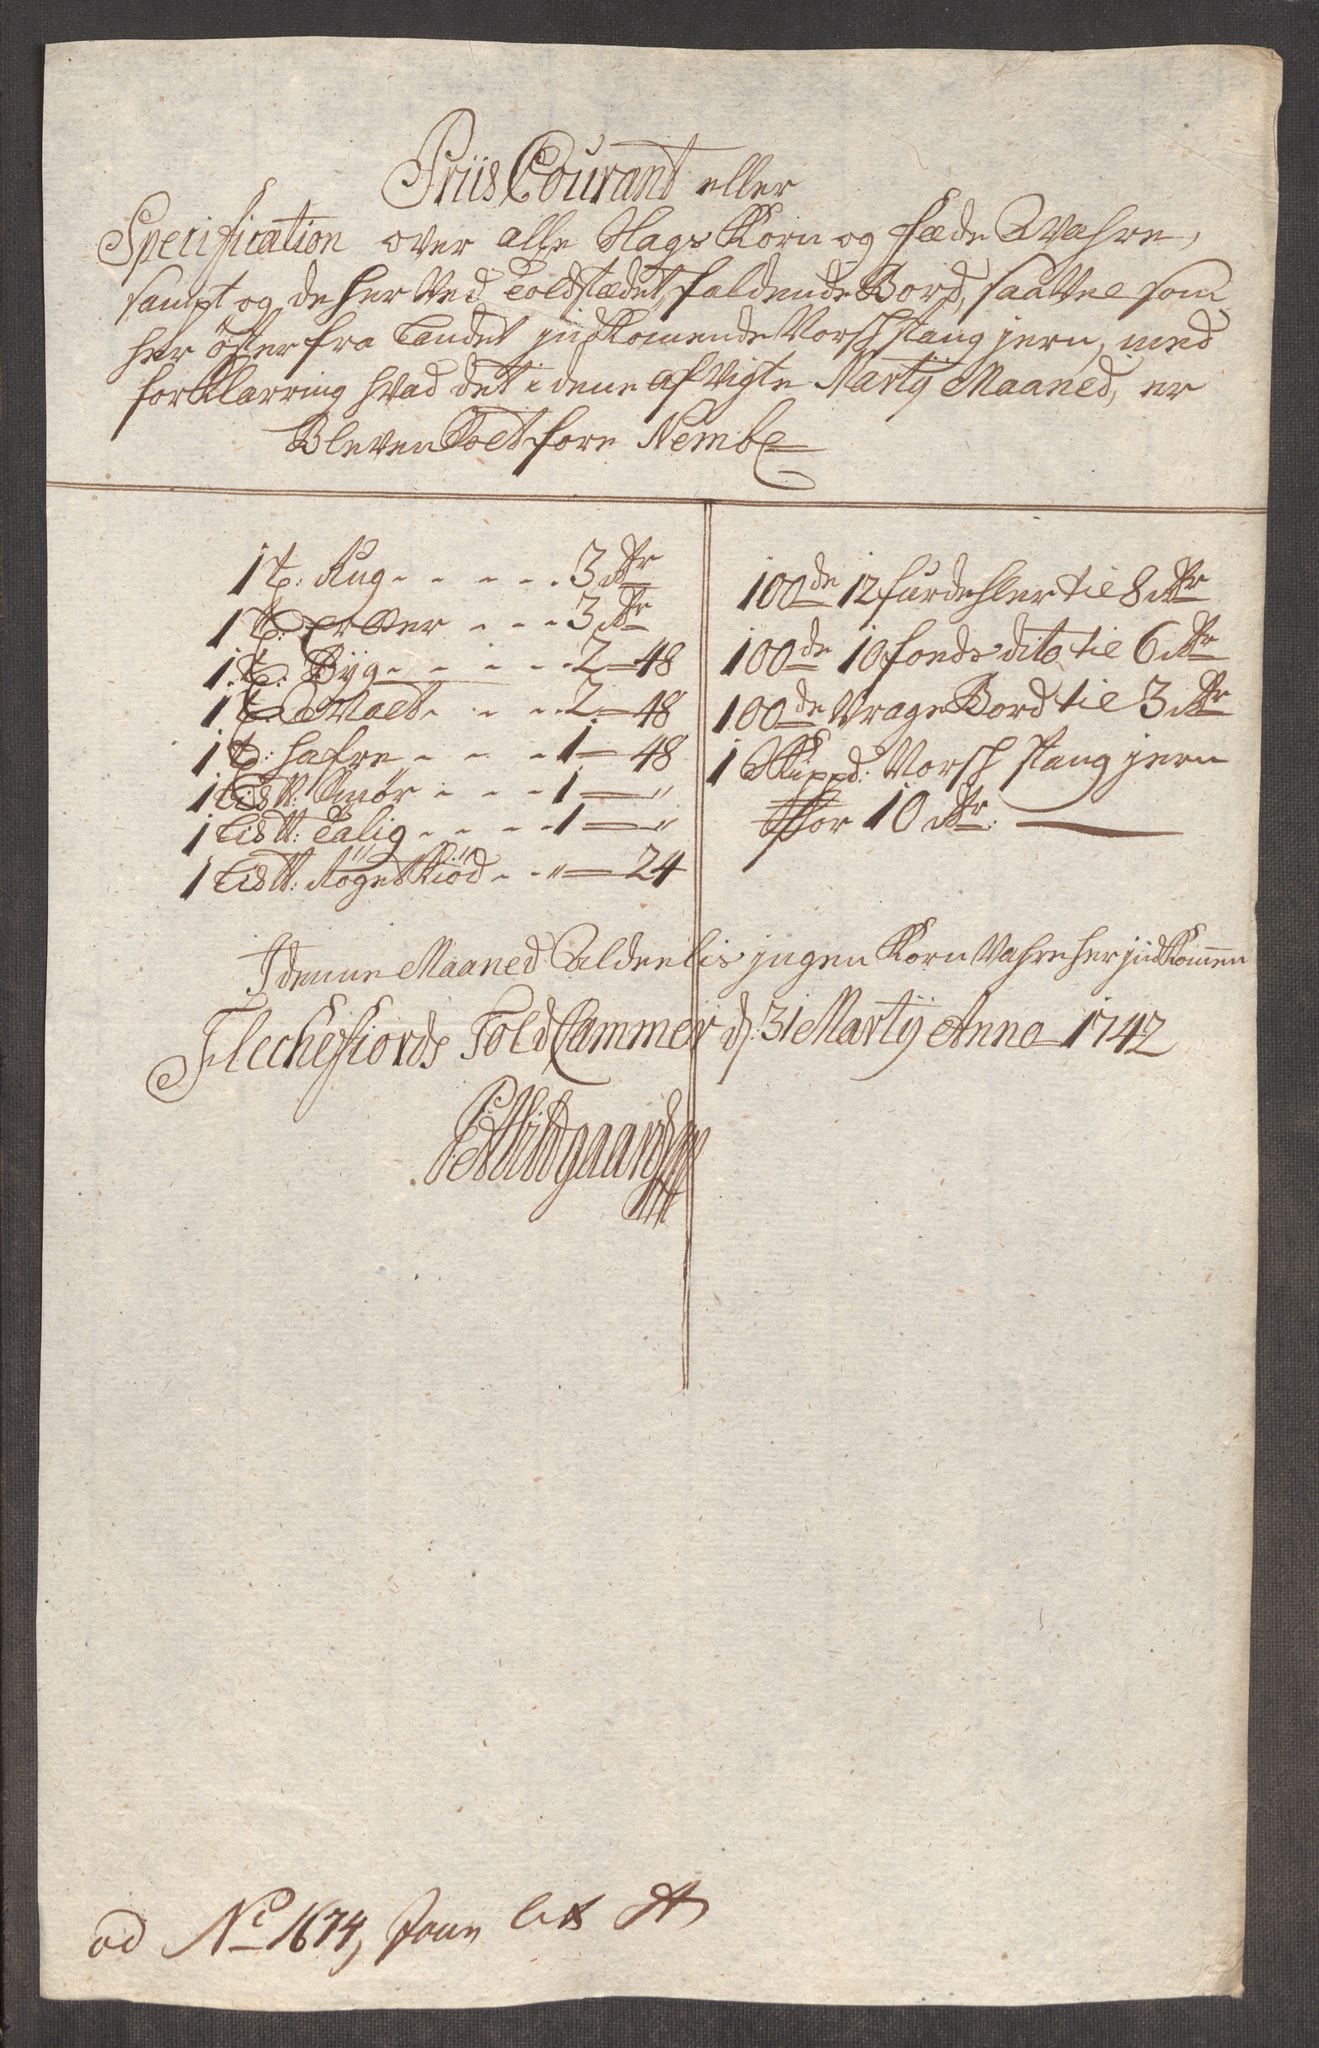 Priis Courant eller
Specification over alle slags Korn og Fæde Wahre,
sampt og de her Ved Toldstædet, faldende Bord, saavel som
her öster fra Landet jndkomende Norsch stang jern, med
forklarring hvad det i dene afvigte Martij Maaned, er
Bleven Soelt fore Nembl
1 td: Rug - - - - - 3 Rdr
1 td: Erter - - - 3 Rdr
1 td: Byg - - - - - 2 — 48
1 td: Malt - - - - 2 — 48
1 td: Hafre - - - - 1 — 48
1 Lis℔: Smör - - - - 1 — "
1 Lis℔: Talig - - - - 1 — "
1 Lis℔: Röget Kiöd - - " — 24
100de 12 furdehler til 8 Rdr
100de 10 fonds dito til 6 Rdr
100de Vrage Bord til 3 Rdr
1 Skippd: Norsch stang jern
for 10 Rdr:
I denne Maaned Aldeelis jngen Korn Vahre her jndkommen
Flechefiords Told Cammer d: 31 Martij Anno 1742
ad No 1674, Jour Lit A